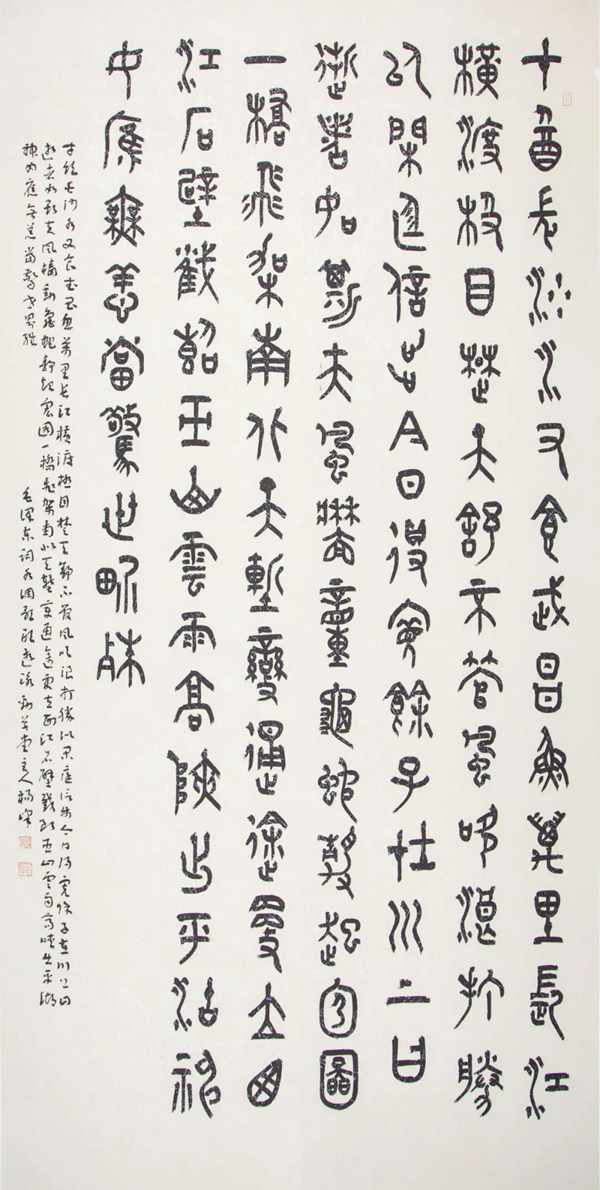 才飲長沙水又食武昌魚萬里長江
橫渡極目楚天舒不管風吹浪打勝
似閑庭信步今日得寬餘子在川上曰
逝者如斯夫風檣動龜蛇靜起宏圖
一橋飛架南北天塹變通途更立西
江石壁截斷巫山雲雨高峽出平湖神
女應無恙當驚世界殊
才飲長沙水又食武昌魚萬里長江橫渡極目楚天舒不管風吹浪打勝似閑庭信步今日得寬餘子在川上曰
逝者如斯夫風檣動龜蛇靜起宏圖一橋飛架南北天塹變通途更立西江石壁截斷巫山雲雨高峽出平湖
神女應無恙當驚世界殊 毛澤東詞水調歌頭游泳